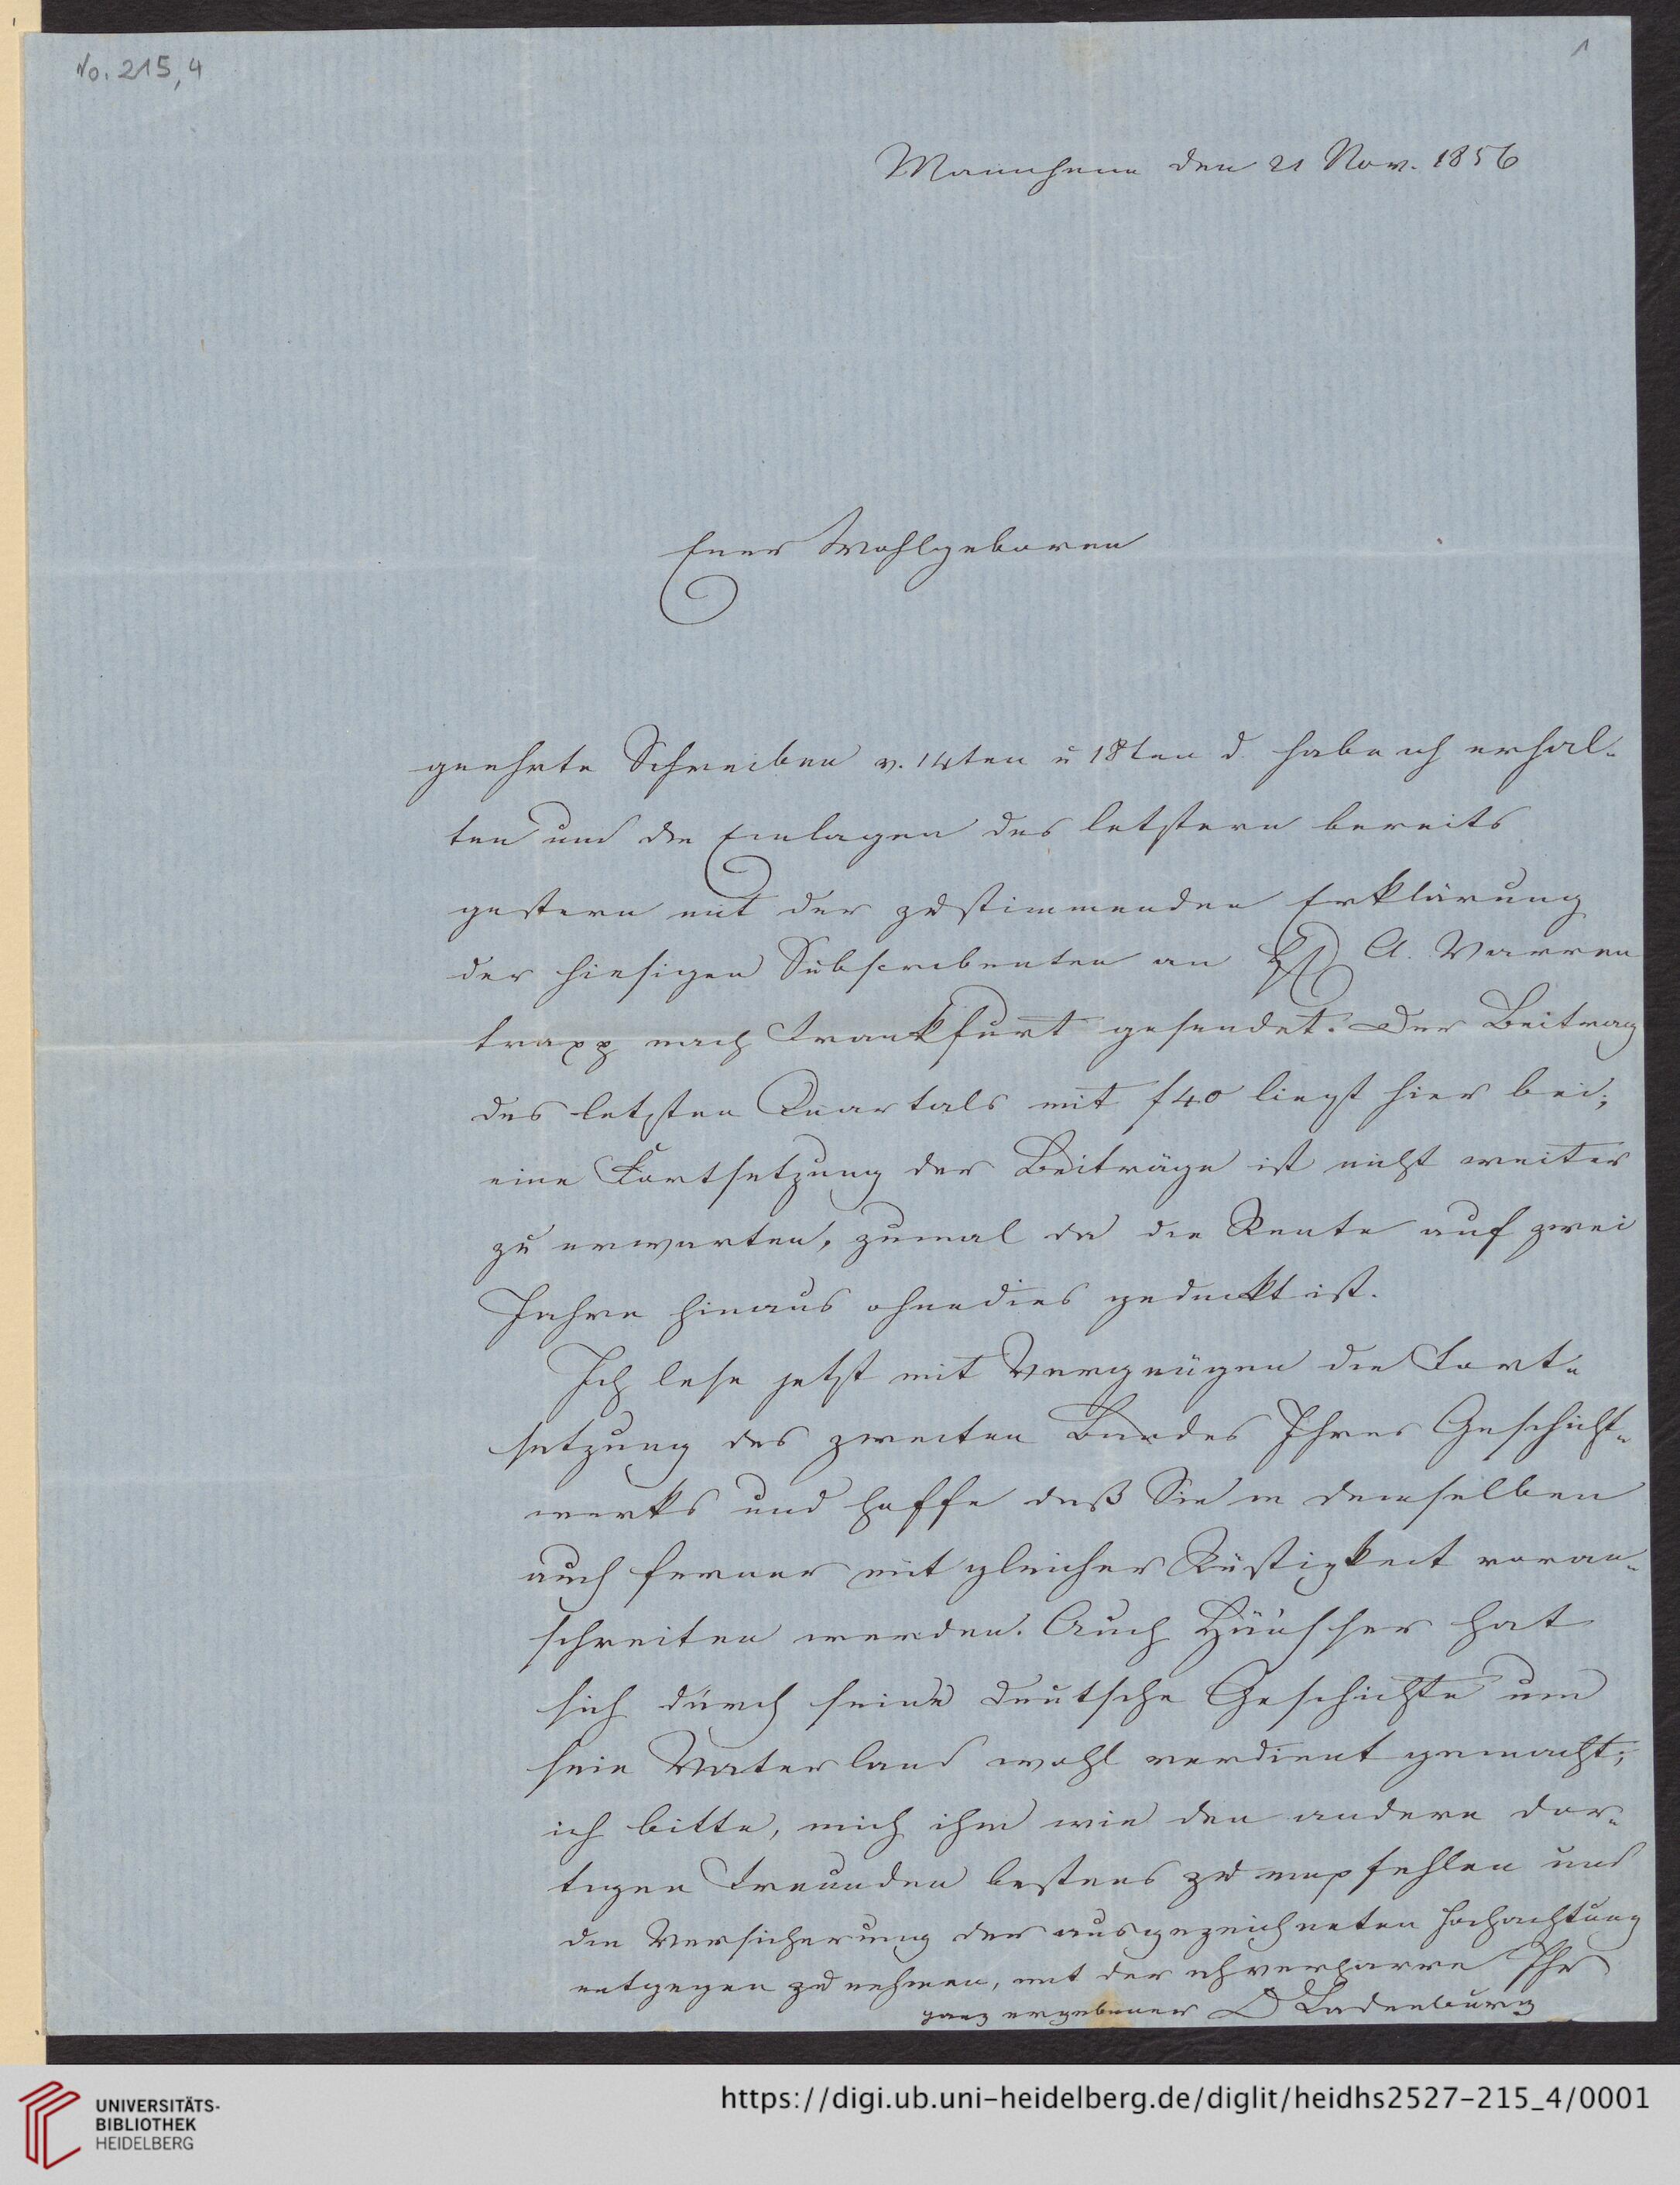 No. 215,4
1
Mannheim den 21 Nov. 1856
Euer Wohlgeboren
geehrte Schreiben v. 14ten u 18ten d. habe ich erhal-
ten und die Einlagen des letztern bereits
gestern mit der zustimmenden Erklärung
der hiesigen Subscribenten an H A. Varren
trapp nach Frankfurt gesendet. Der Beitrag
des letzten Quartals mit f 40 liegt hier bei;
eine Fortsetzung der Beiträge ist nicht weiter
zu erwarten, zumal da die Rente auf zwei
Jahre hinaus ohnedies gedeckt ist.
Ich lese jetzt mit Vergnügen die Fort-
setzung des zweiten Bandes Ihres Geschicht-
werks und hoffe daß Sie in demselben
auch ferner mit gleicher Rüstigkeit voran-
schreiten werden. Auch Häusser hat
sich durch seine deutsche Geschichte um
sein Vaterland wohl verdient gemacht;
ich bitte, mich ihm wie den andern dor-
tigen Freunden bestens zu empfehlen und
die Versicherung der ausgezeichneten Hochachtung
entgegen zu nehmen, mit der ich verharre Ihr
ganz ergebener Ladenburg
UNIVERSITÄTS-
BIBLIOTHEK
HEIDELBERG
https://digi.ub.uni-heidelberg.de/diglit/heidhs2527-215_4/0001